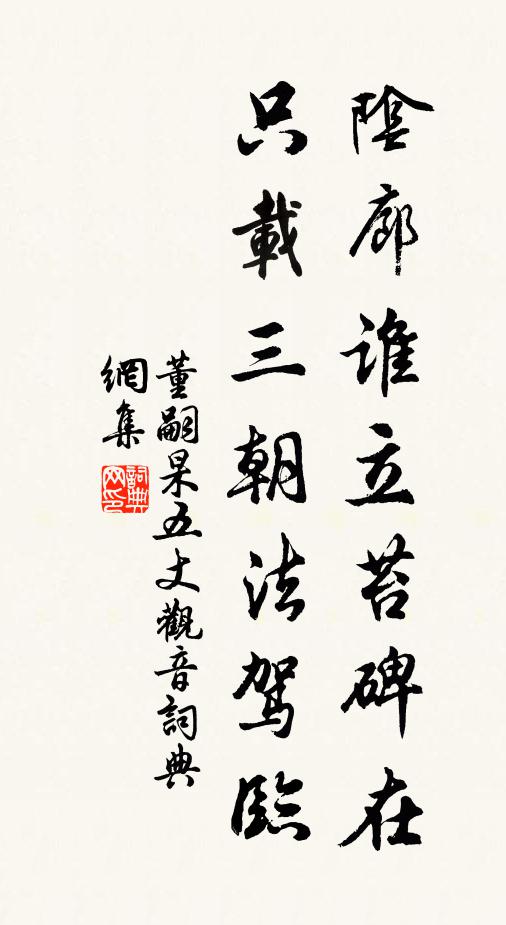 陰廊誰立苔碑在
只載三朝法駕臨
董嗣杲五丈觀音詞典
網集
詞典
网印